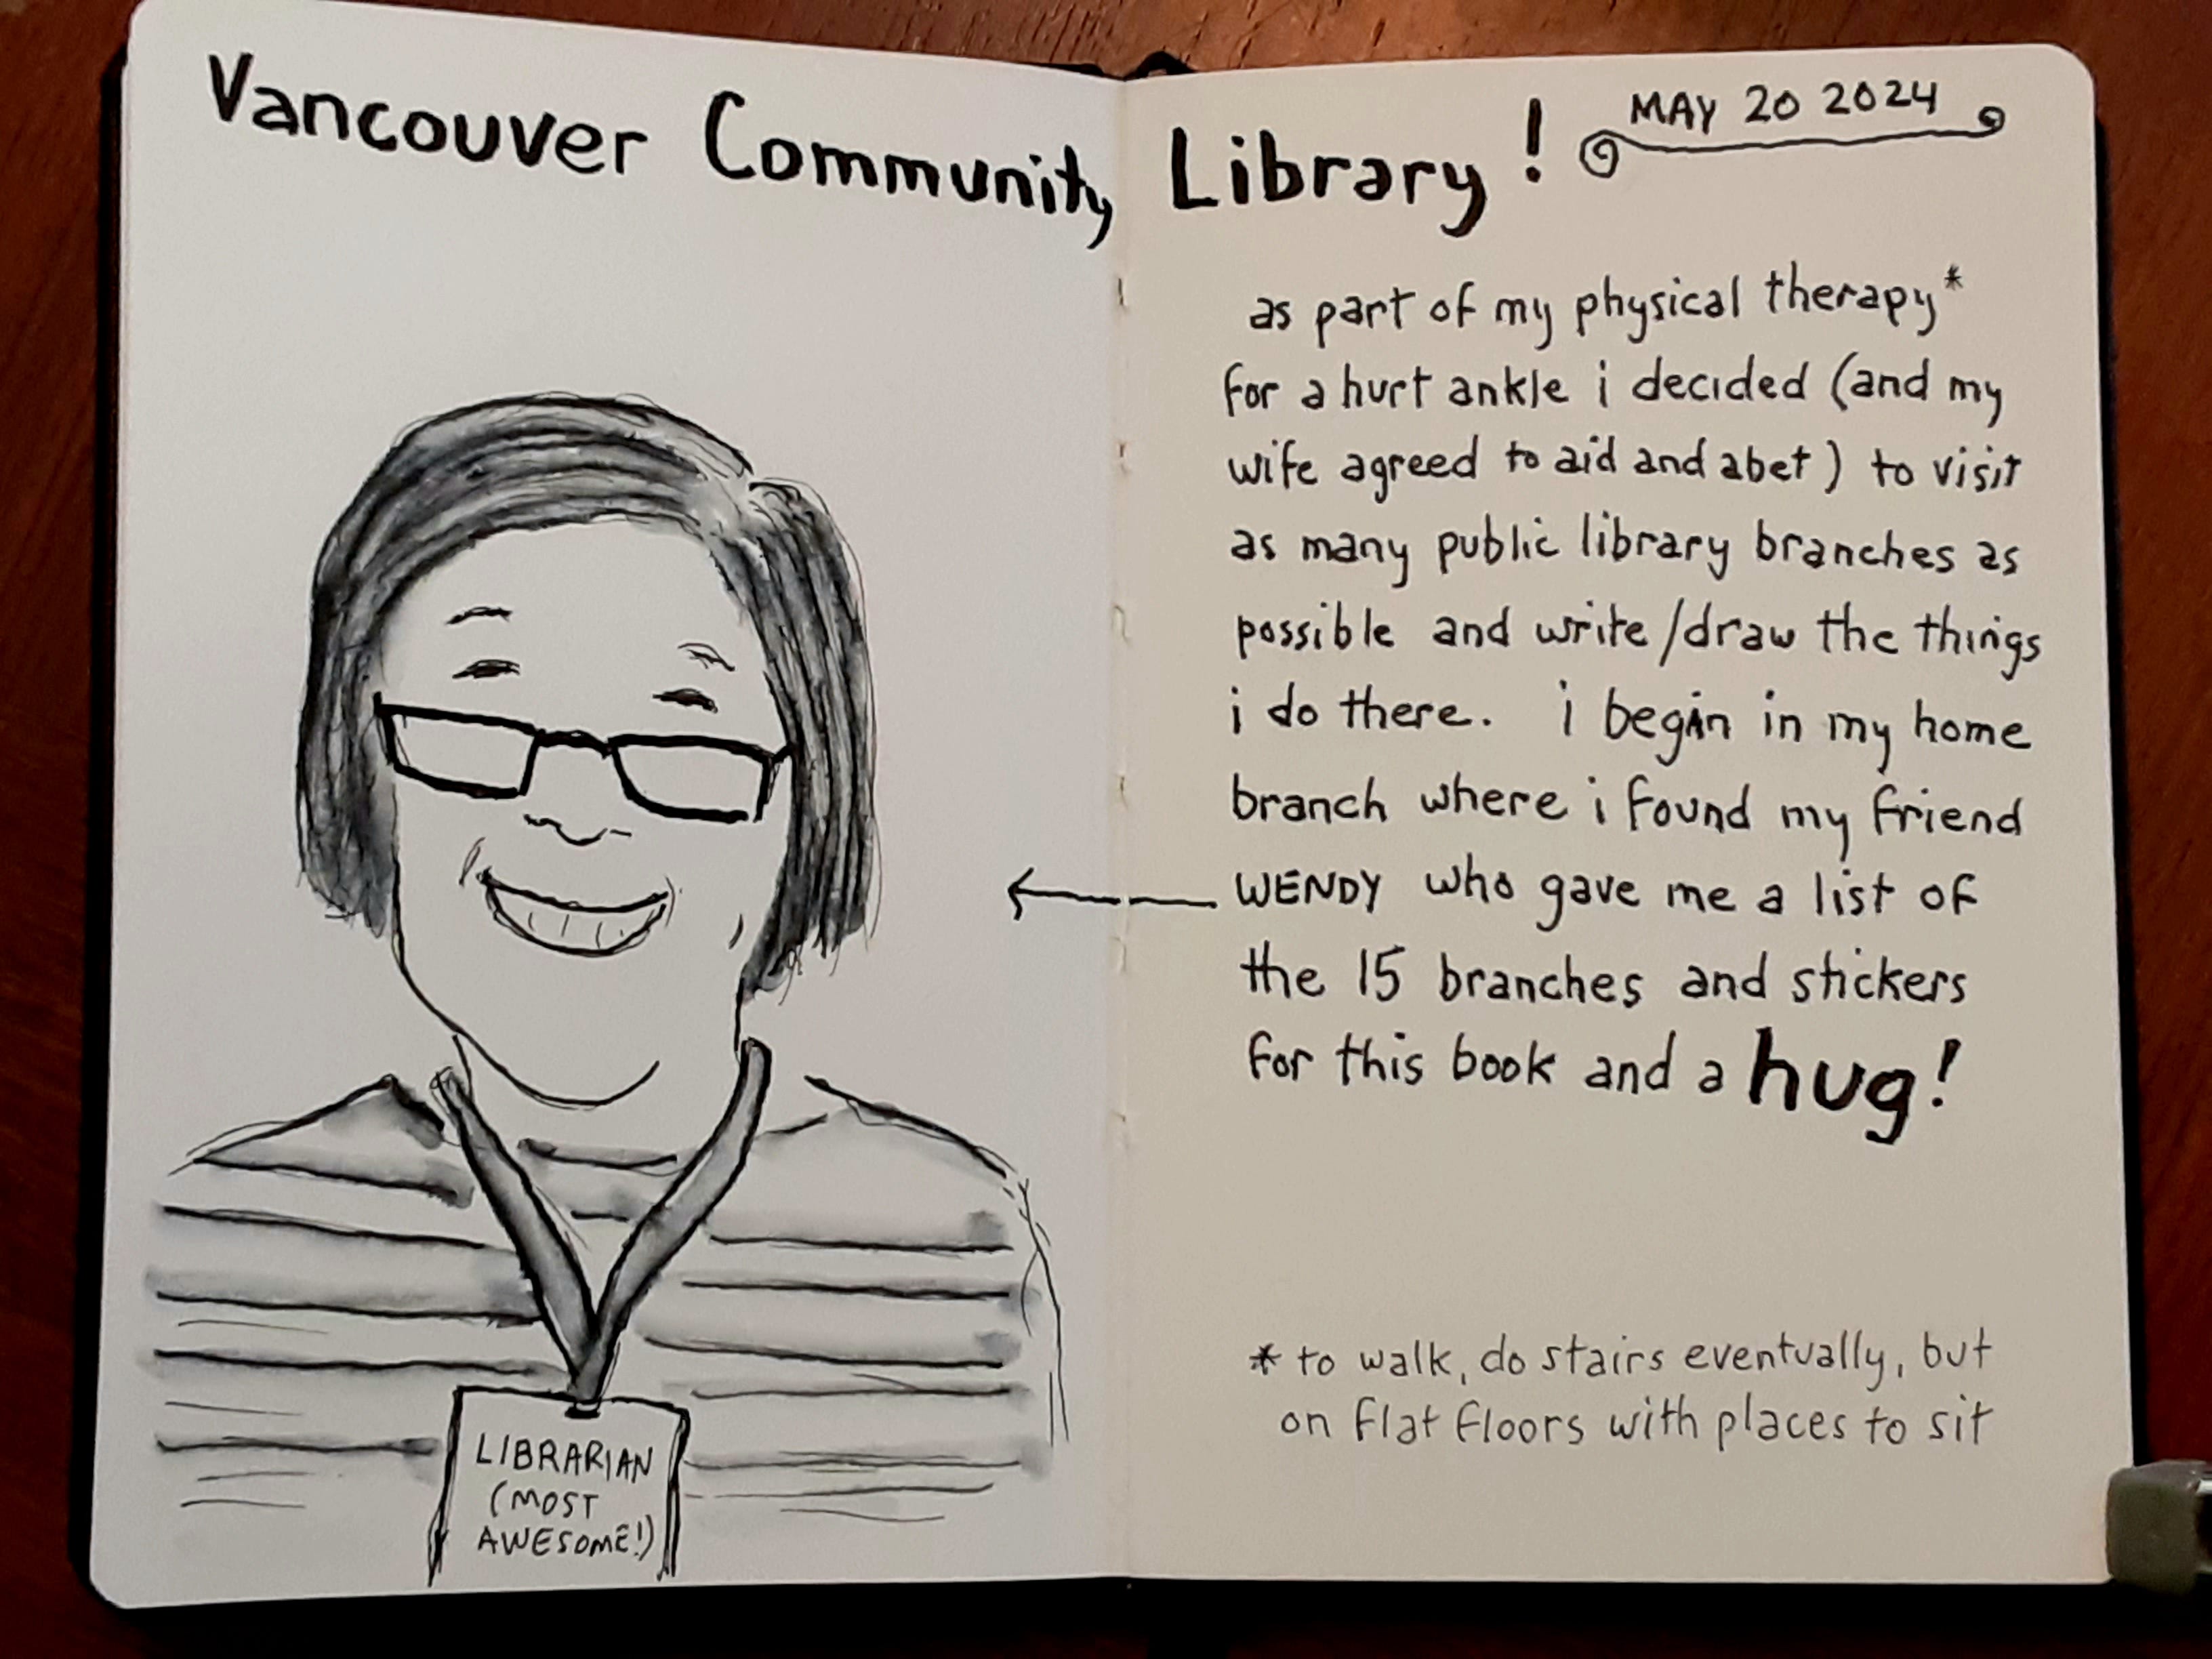 Vancouver Community Library!
MAY 20 2024
as part of my physical therapy*
for a hurt ankle i decided (and my
wife agreed to aid and abet) to visit
as many public library branches as
possible and write/draw the things
i do there. i begin in my home
branch where i found my friend
WENDY who gave me a list of
the 15 branches and stickers
for this book and a hug!
* to walk, do stairs eventually, but
on flat floors with places to sit
LIBRARIAN
(MOST
AWESOME!)